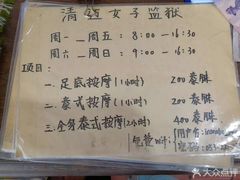 清迈女子监狱
周一 — 周五：8:00 — 16:30
周六 — 周日：9:00 — 16:30
项目：
一. 足底按摩(1小时) 200泰铢
二. 泰式按摩(1小时) 200泰铢
三. 全身泰式按摩(2小时) 400泰铢
免费wifi：
用户名：
密码：053-
大众点评